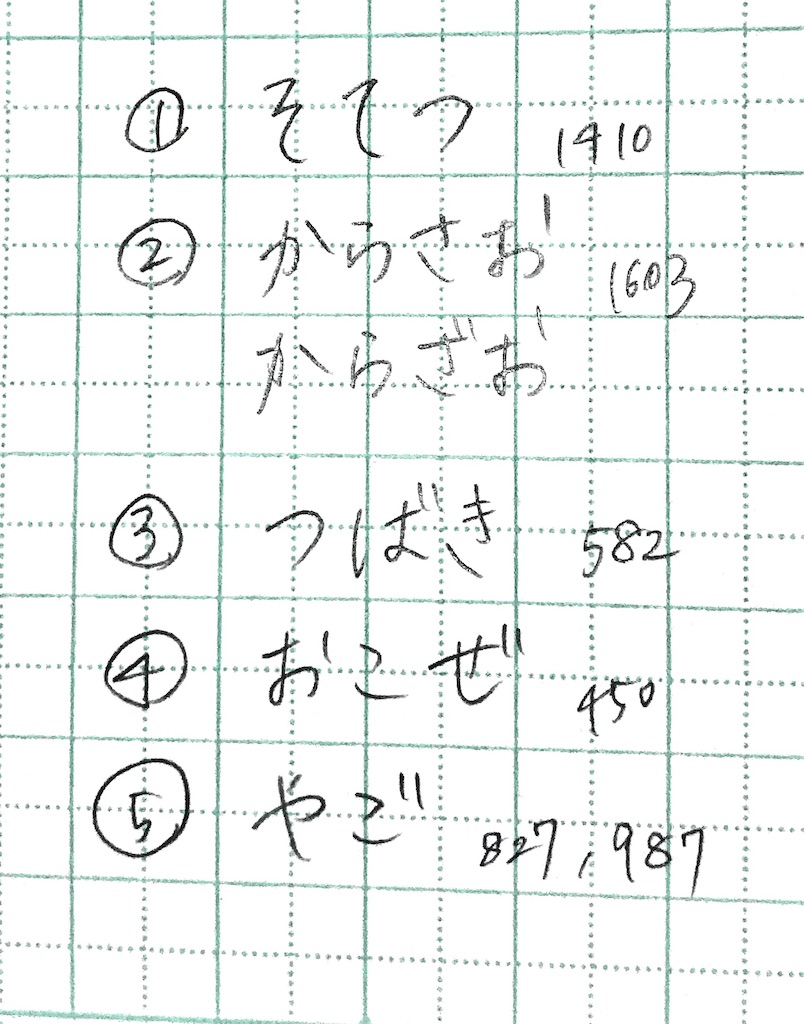 ① そてつ 1410
② からさお 1603
からざお
③ つばき 582
④ おこぜ 450
⑤ やご 827, 987